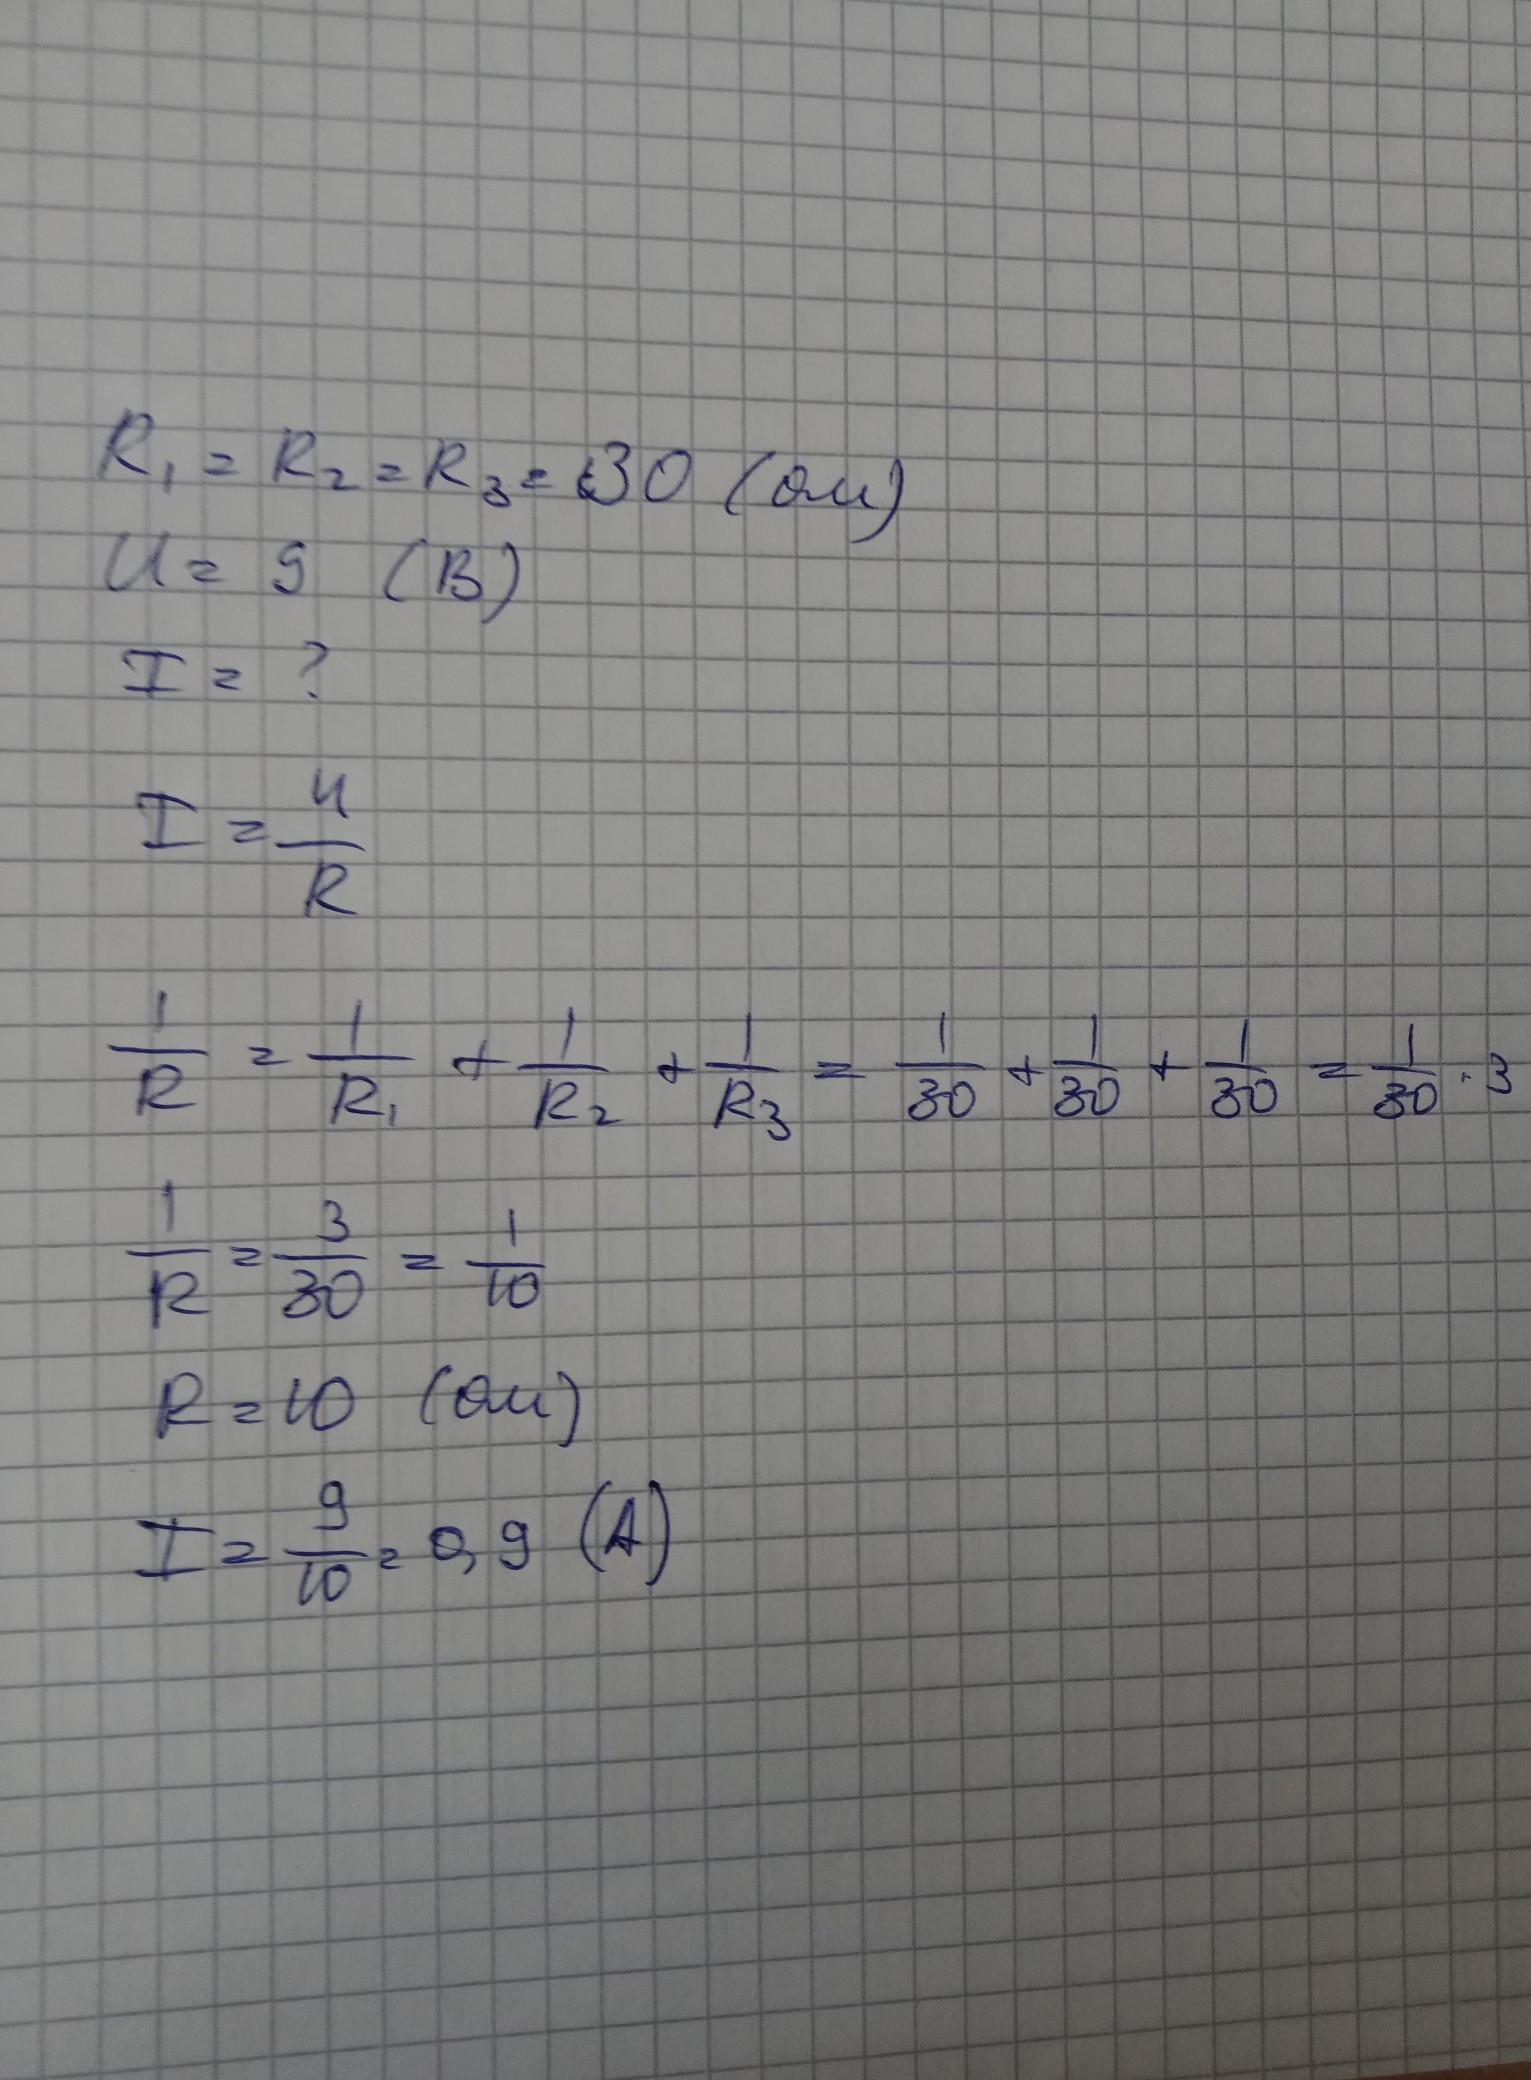 R₁ = R₂ = R₃ = 30 (Ом)
U = 9 (В)
I = ?
I = U/R
1/R = 1/R₁ + 1/R₂ + 1/R₃ = 1/30 + 1/30 + 1/30 = 1/30 · 3
1/R = 3/30 = 1/10
R = 10 (Ом)
I = 9/10 = 0,9 (А)